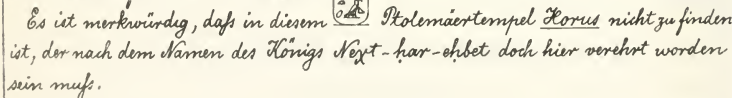 Es ist merkwürdig, daſs in diesem Ptolemäertempel Horus nicht zu finden
ist, der nach dem Namen des Königs Neχt-ḥar-eḥbet doch hier verehrt worden
sein muſs.